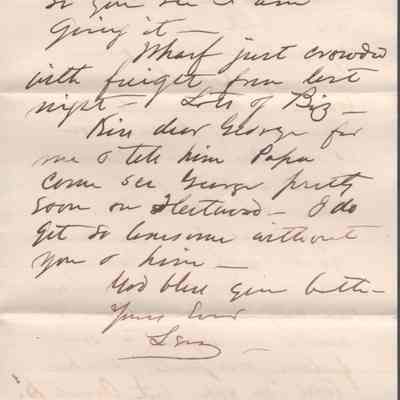 so you see I am
Giving it —
Wharf just crowded
with freight from last
night — Lots of Biz —
Kiss dear George for
me & tell him Papa
come see George pretty
soon on Fleetwood — I do
get so lonesome without
you & him —
God bless you both —
Yours Ever